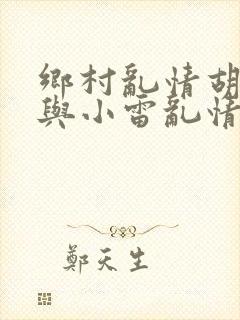 鄉村亂情胡
與小雷亂情
鄭天生